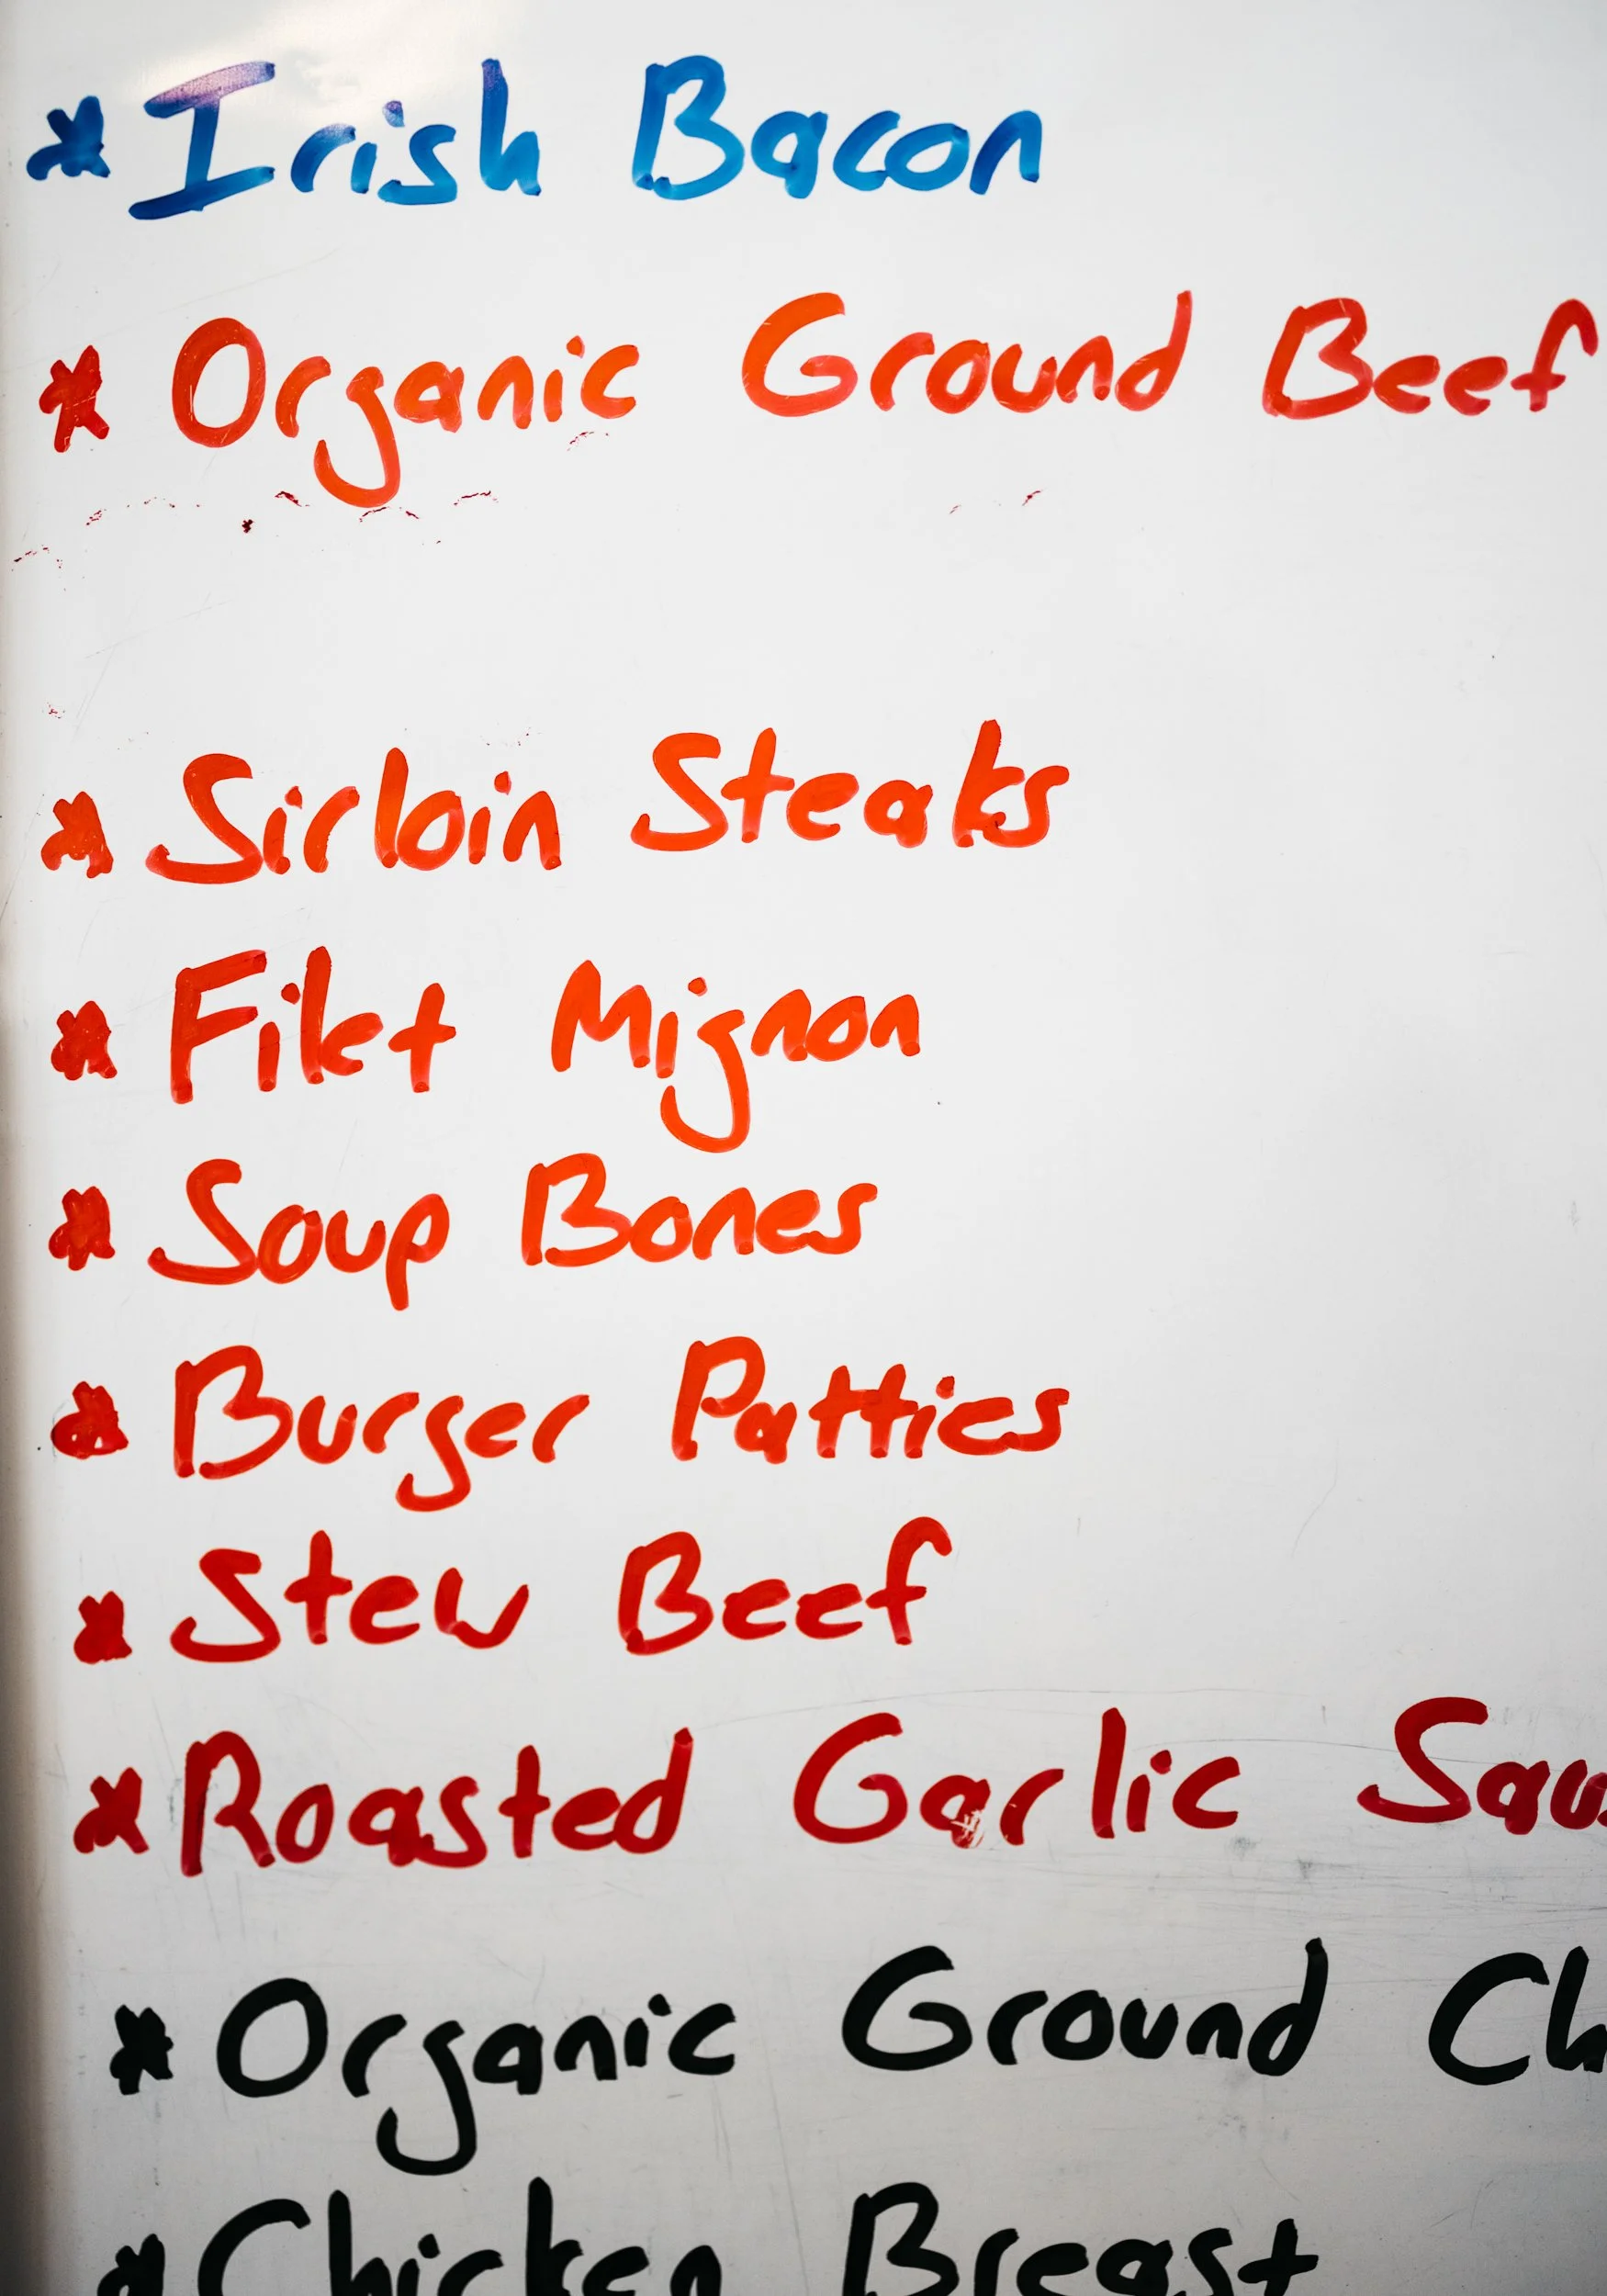 * Irish Bacon
* Organic Ground Beef
* Sirloin Steaks
* Filet Mignon
* Soup Bones
* Burger Patties
* Stew Beef
* Roasted Garlic Sau
* Organic Ground Ch
* Chicken Breast